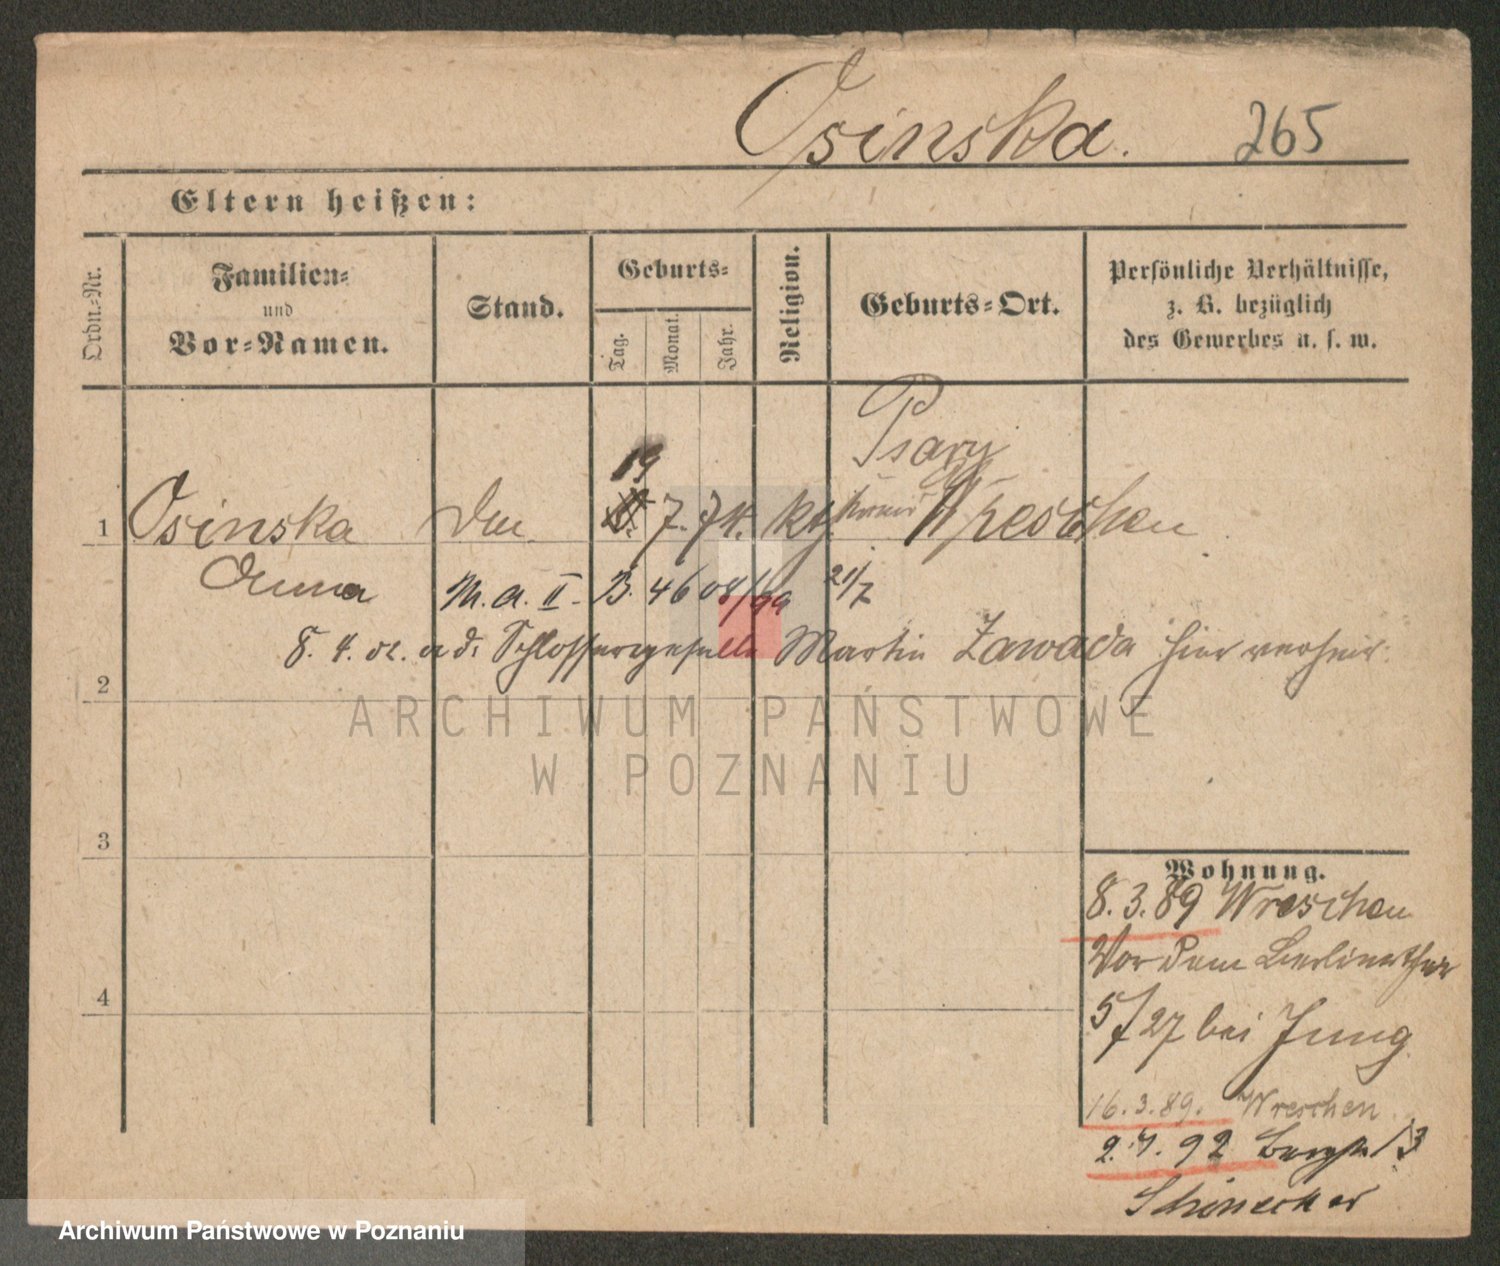 Osinska. 265
Eltern heißen:
Ordn.-Nr.
Familien-
und
Vor-Namen.
Stand.
Geburts-
Tag.
Monat.
Jahr.
Religion.
Geburts-Ort.
Persönliche Verhältnisse,
z. B. bezüglich
des Gewerbes u. s. w.
Psary
19
1 Osinska 7. 74. kth. Kreis Wreschen
Anna M. a. II. B. 4608/99 21/7
8. 4. 02. a. d. Schlossergesellen Martin Zawada hier verheir.
2
ARCHIWUM PAŃSTWOWE
W POZNANIU
3
Wohnung.
8. 3. 89 Wreschen
Vor dem Berlinerthor
4
5/27 bei Jung
16. 3. 89. Wreschen
2. 4. 92 Bergstr 13
Archiwum Państwowe w Poznaniu